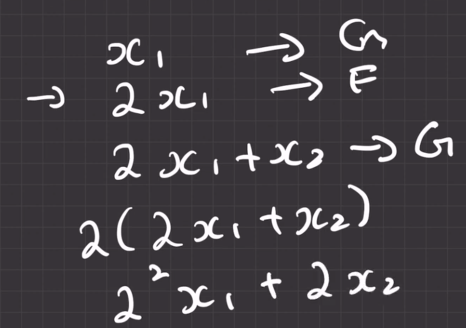 x₁ → G
→ 2x₁ → F
2x₁ + x₂ → G
2(2x₁ + x₂)
2²x₁ + 2x₂